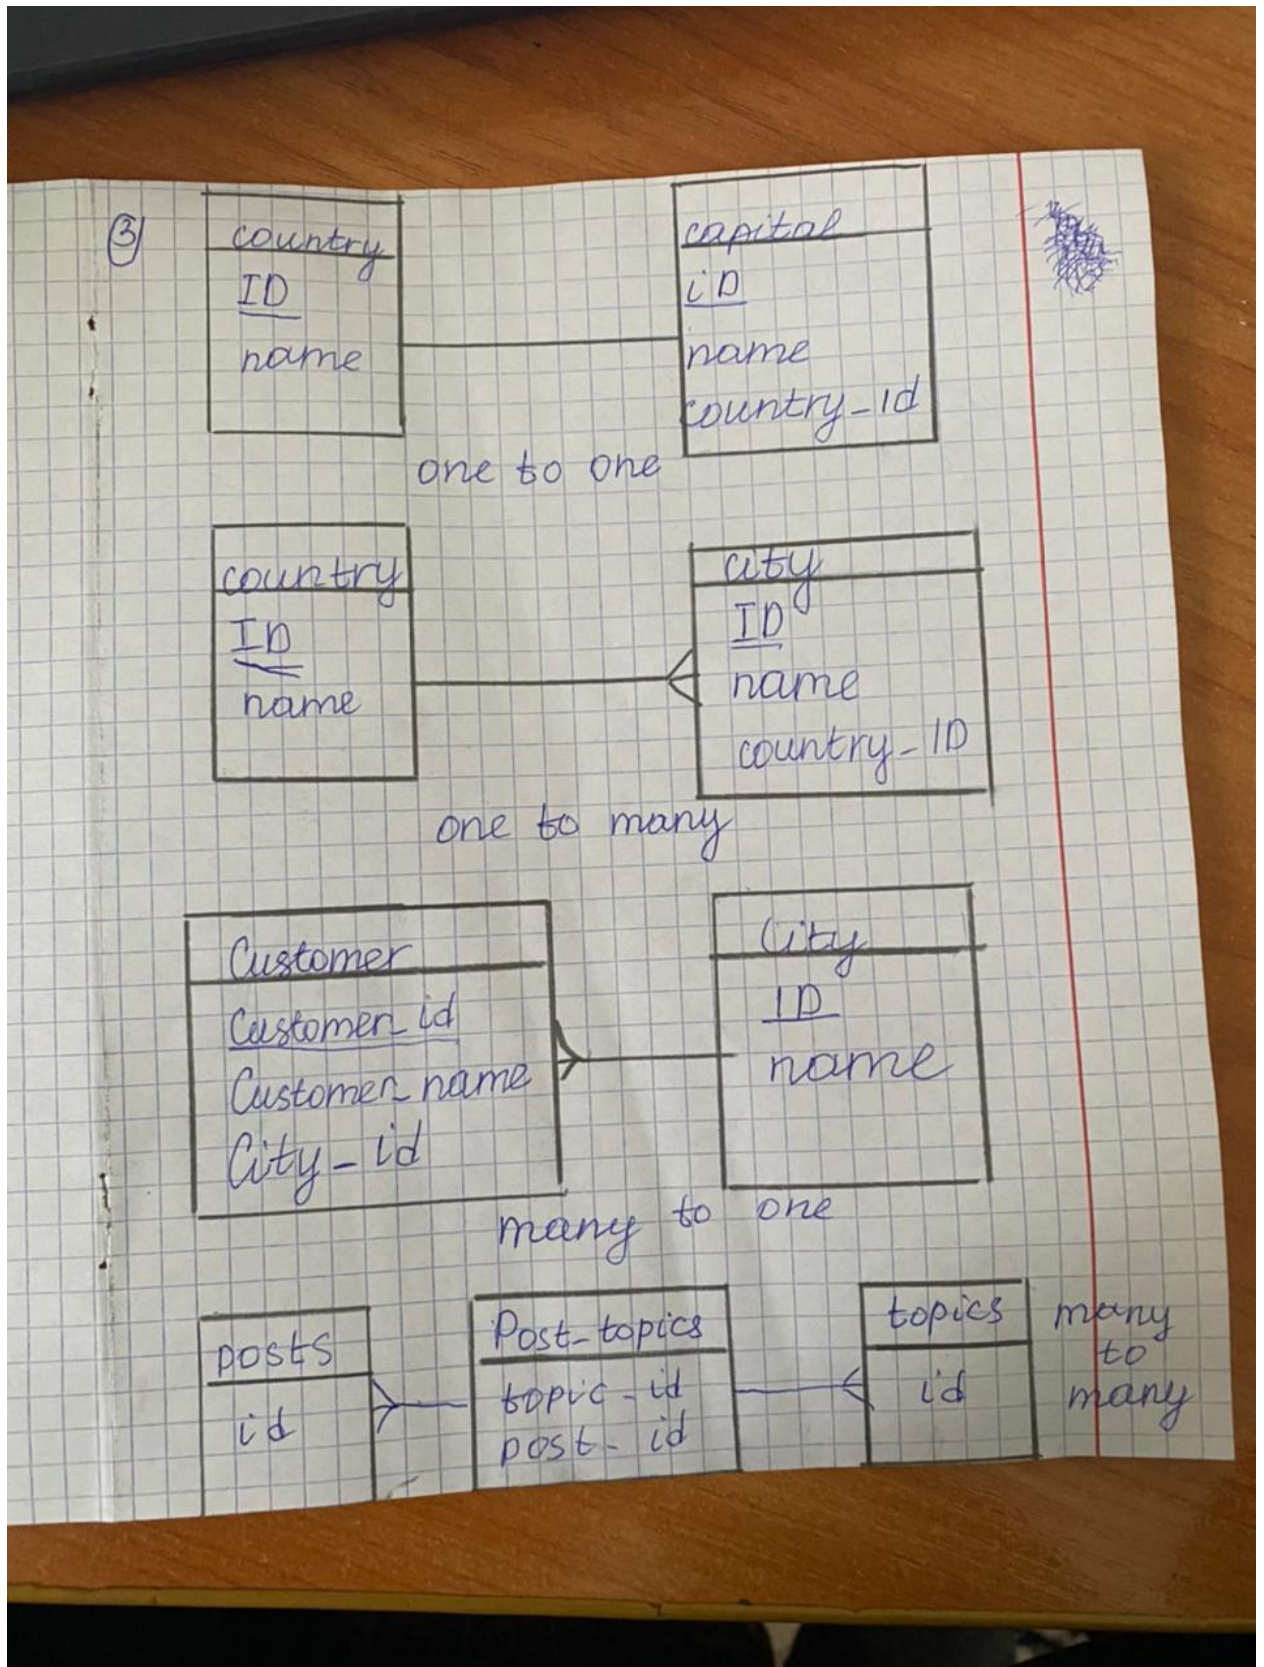 3
country
ID
name
capital
iD
name
country_id
one to one
country
ID
name
city
ID
name
country_ID
one to many
Customer
Customer_id
Customer_name
City_id
City
ID
name
many to one
posts
id
Post_topics
topic_id
post_id
topics
id
many
to
many